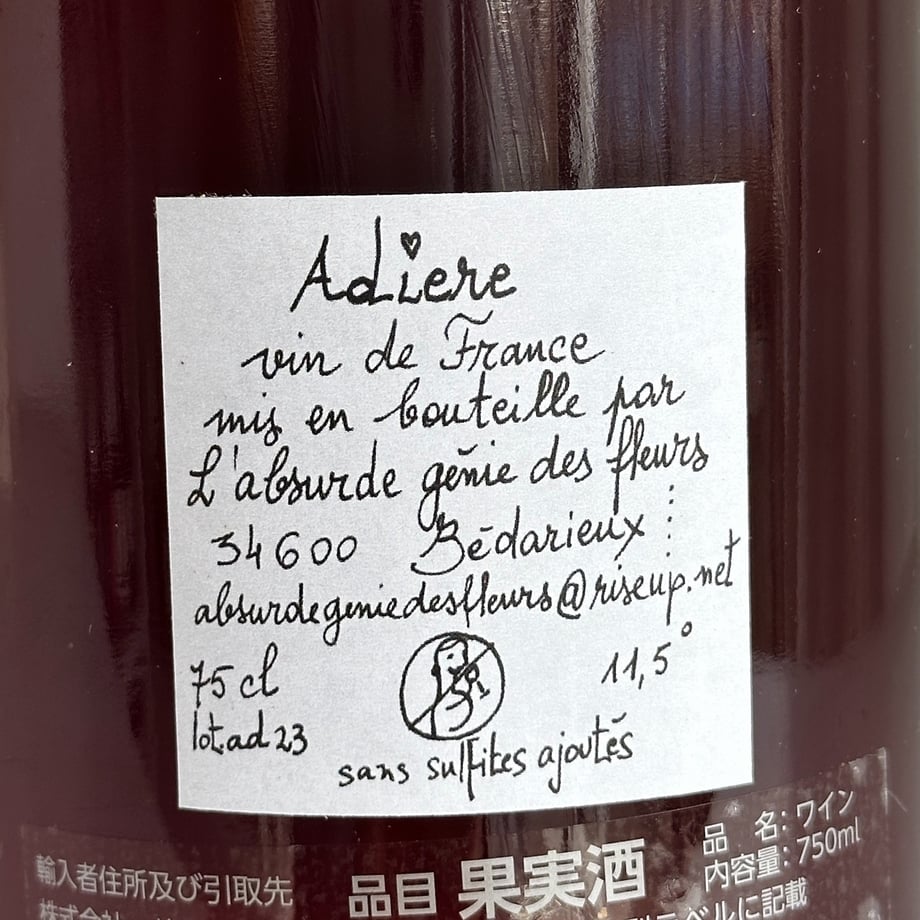 Adiere
vin de France
mis en bouteille par
L'absurde génie des fleurs
34600 Bédarieux
absurdegeniedesfleurs@riseup.net
75 cl 11,5°
lot ad 23
sans sulfites ajoutés
輸入者住所及び引取先
株式会社
品目 果実酒
品 名: ワイン
内容量: 750ml
ベルに記載